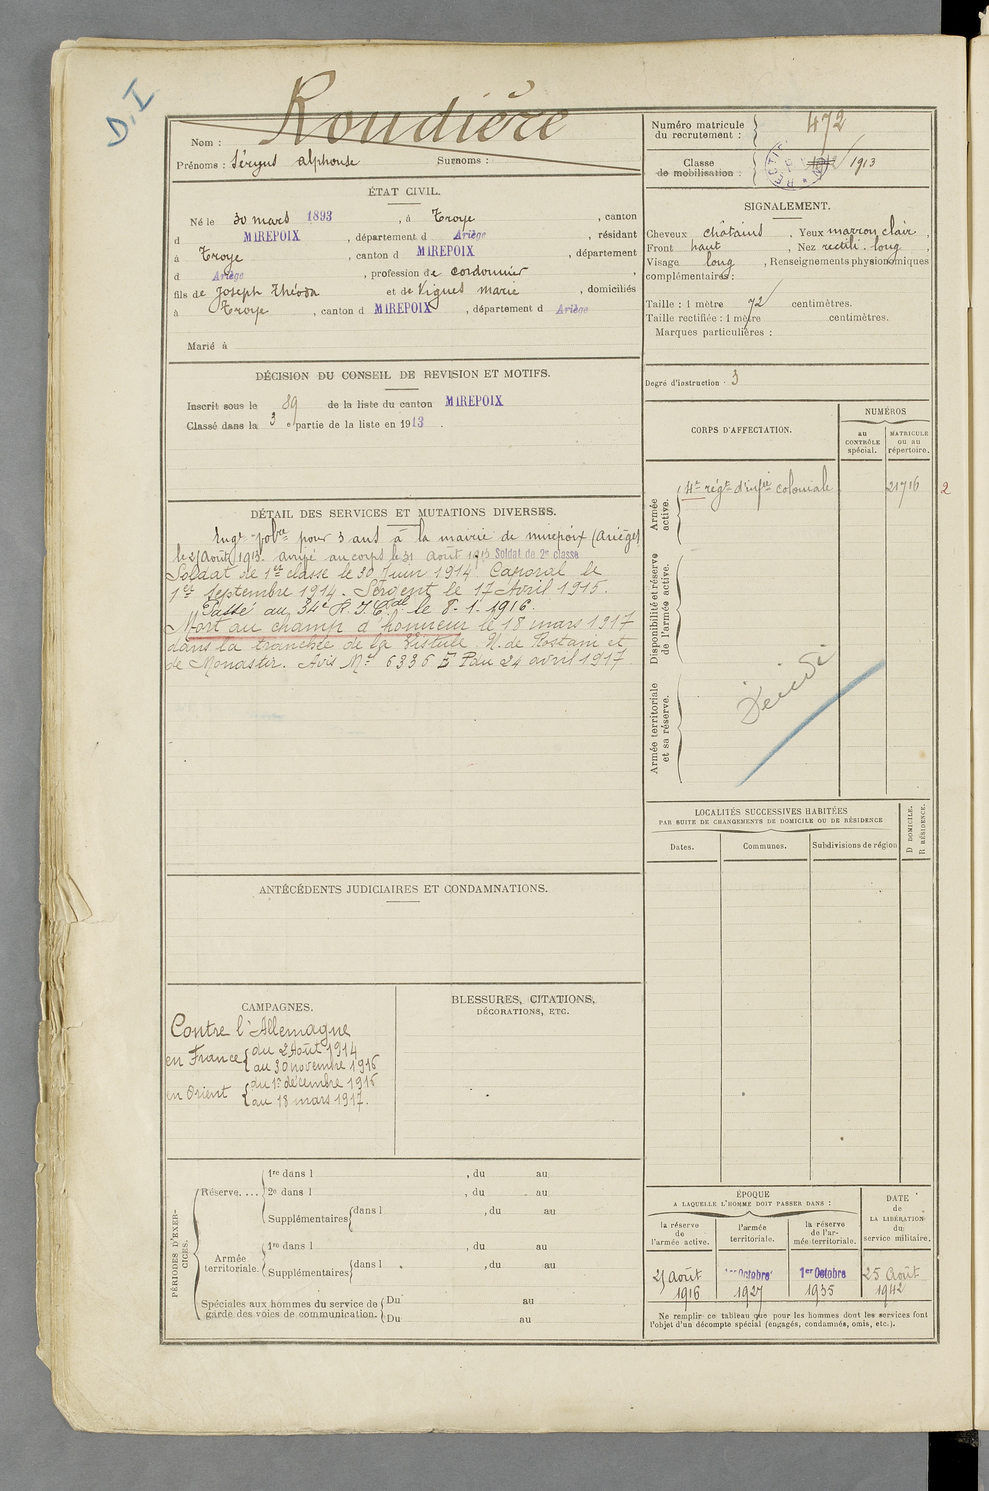 D.I
Nom : Roudière
Prénoms : Séryus alphonse Surnoms :
Numéro matricule
du recrutement : 472
Classe
de mobilisation : 1913
ÉTAT CIVIL.
Né le 30 mars 1893, à Troye, canton
d MIREPOIX, département d Ariège, résidant
à Troye, canton d MIREPOIX, département
d Ariège, profession de cordonnier,
fils de Joseph Théodn et de Vignes marie, domiciliés
à Troye, canton d MIREPOIX, département d Ariège
Marié à
SIGNALEMENT.
Cheveux châtains, Yeux marron clair,
Front haut, Nez rectili. long,
Visage long, Renseignements physionomiques
complémentaires :
Taille : 1 mètre 72 centimètres.
Taille rectifiée : 1 mètre centimètres.
Marques particulières :
Degré d'instruction : 3
DÉCISION DU CONSEIL DE REVISION ET MOTIFS.
Inscrit sous le 89 de la liste du canton MIREPOIX
Classé dans la 3e partie de la liste en 1913.
DÉTAIL DES SERVICES ET MUTATIONS DIVERSES.
Engé volre pour 3 ans à la mairie de mirepoix (Ariège)
le 25 Août 1913. arrivé au corps le 31 août 1913 Soldat de 2e classe
Soldat de 1ère classe le 30 Juin 1914. Caporal le
1er Septembre 1914. Sergent le 17 Avril 1915.
Passé au 34e R.I.Cale le 8.1.1916.
Mort au champ d'honneur le 18 mars 1917
dans la tranchée de la Vistule. N. de Rostani et
de Monastir. Avis Mel 6336 E P du 24 avril 1917
CORPS D'AFFECTATION.
NUMÉROS
au
CONTRÔLE
spécial.
MATRICULE
ou au
répertoire.
Armée
active.
4e régt d'infie coloniale 21716 2
Disponibilité et réserve
de l'armée active.
Armée territoriale
et sa réserve.
LOCALITÉS SUCCESSIVES HABITÉES
PAR SUITE DE CHANGEMENTS DE DOMICILE OU DE RÉSIDENCE
Dates.
Communes.
Subdivisions de région
D DOMICILE.
R RÉSIDENCE.
ANTÉCÉDENTS JUDICIAIRES ET CONDAMNATIONS.
CAMPAGNES.
Contre l'Allemagne
en France { du 2 Août 1914
au 30 novembre 1916
en Orient { du 1er décembre 1916
au 18 mars 1917.
BLESSURES, CITATIONS,
DÉCORATIONS, ETC.
PÉRIODES D'EXER-
CICES.
Réserve....
1re dans l , du au
2e dans l , du au
Supplémentaires { dans l , du au
Armée
territoriale.
1re dans l , du au
Supplémentaires { dans l , du au
Spéciales aux hommes du service de
garde des voies de communication.
Du au
Du au
ÉPOQUE
A LAQUELLE L'HOMME DOIT PASSER DANS :
la réserve
de
l'armée active.
l'armée
territoriale.
la réserve
de l'ar-
mée territoriale.
DATE
de
LA LIBÉRATION
du
service militaire.
25 Août
1916
1er Octobre
1927
1er Octobre
1935
25 Août
1942
Ne remplir ce tableau que pour les hommes dont les services font
l'objet d'un décompte spécial (engagés, condamnés, omis, etc.).